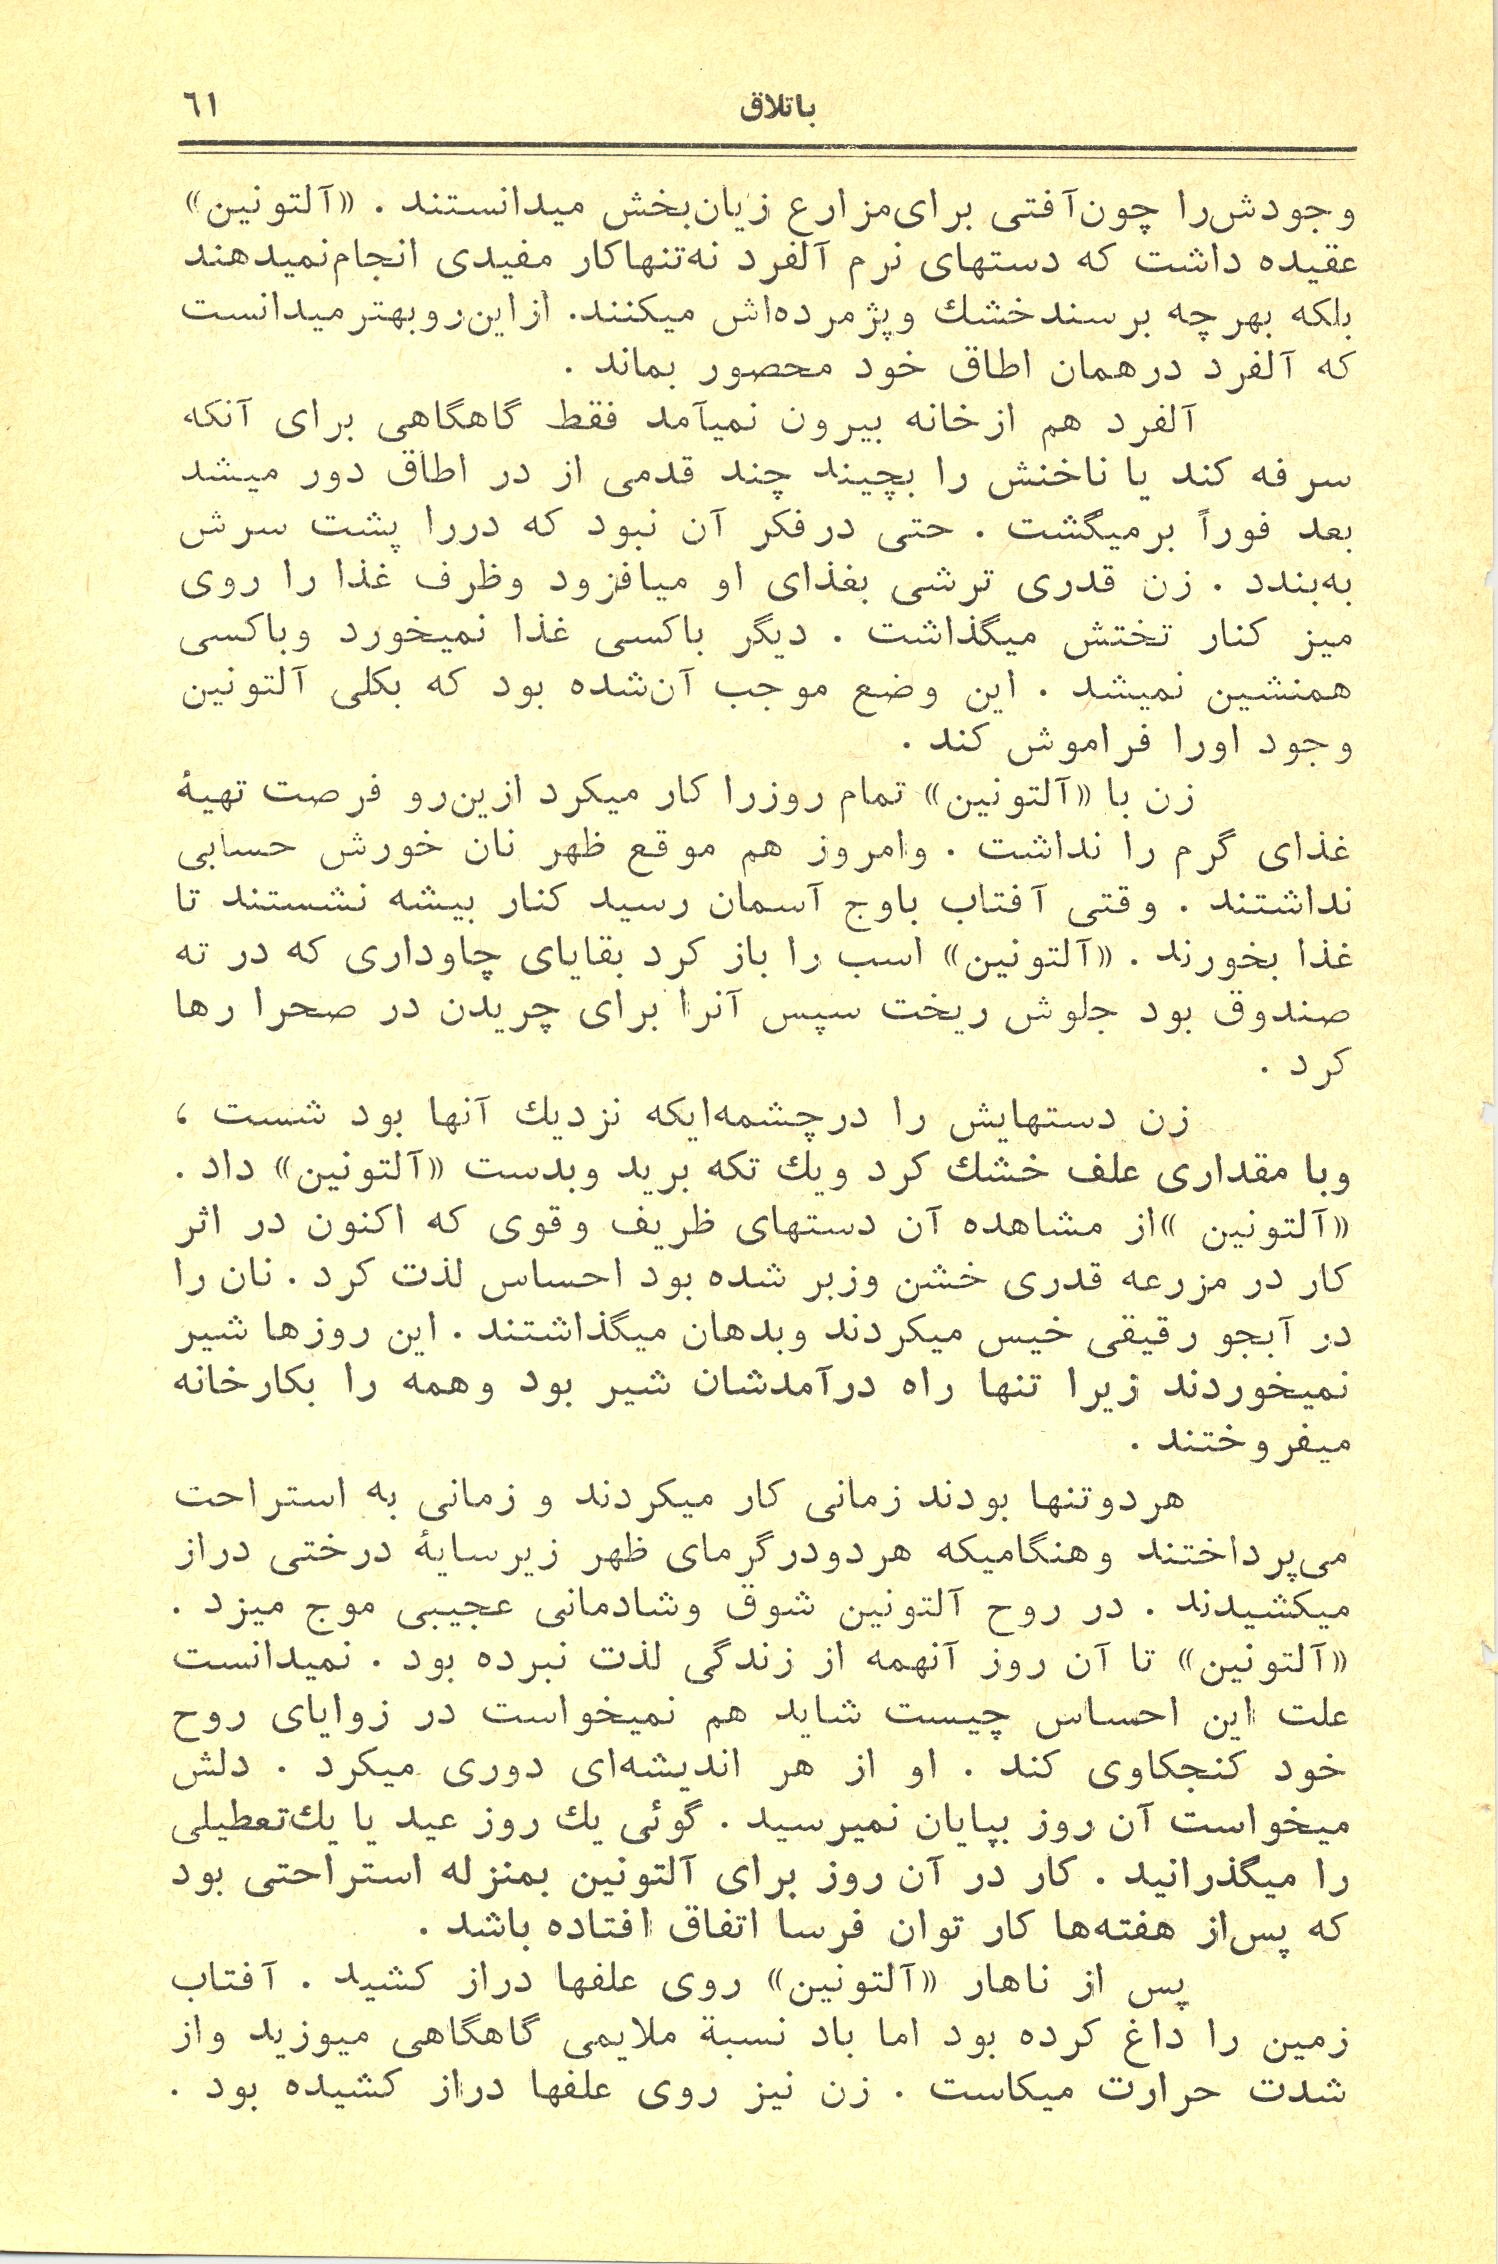 باتلاق
٦١
وجودش‌را چون‌آفتی برای‌مزارع زیان‌بخش میدانستند . «آلتونین»
عقیده داشت که دستهای نرم آلفرد نه‌تنهاکار مفیدی انجام‌نمیدهند
بلکه بهرچه برسندخشك وپژمرده‌اش میکنند. ازاین‌روبهترمیدانست
که آلفرد درهمان اطاق خود محصور بماند .
آلفرد هم ازخانه بیرون نمیآمد فقط گاهگاهی برای آنکه
سرفه کند یا ناخنش را بچیند چند قدمی از در اطاق دور میشد
بعد فوراً برمیگشت . حتی درفکر آن نبود که دررا پشت سرش
به‌بندد . زن قدری ترشی بغذای او میافزود وظرف غذا را روی
میز کنار تختش میگذاشت . دیگر باکسی غذا نمیخورد وباکسی
همنشین نمیشد . این وضع موجب آن‌شده بود که بکلی آلتونین
وجود اورا فراموش کند .
زن با «آلتونین» تمام روزرا کار میکرد ازین‌رو فرصت تهیهٔ
غذای گرم را نداشت . وامروز هم موقع ظهر نان خورش حسابی
نداشتند . وقتی آفتاب باوج آسمان رسید کنار بیشه نشستند تا
غذا بخورند . «آلتونین» اسب را باز کرد بقایای چاوداری که در ته
صندوق بود جلوش ریخت سپس آنرا برای چریدن در صحرا رها
کرد .
زن دستهایش را درچشمه‌ایکه نزدیك آنها بود شست ،
وبا مقداری علف خشك کرد ویك تکه برید وبدست «آلتونین» داد .
«آلتونین »از مشاهده آن دستهای ظریف وقوی که اکنون در اثر
کار در مزرعه قدری خشن وزبر شده بود احساس لذت کرد . نان را
در آبجو رقیقی خیس میکردند وبدهان میگذاشتند . این روزها شیر
نمیخوردند زیرا تنها راه درآمدشان شیر بود وهمه را بکارخانه
میفروختند .
هردوتنها بودند زمانی کار میکردند و زمانی به استراحت
می‌پرداختند وهنگامیکه هردودرگرمای ظهر زیرسایهٔ درختی دراز
میکشیدند . در روح آلتونین شوق وشادمانی عجیبی موج میزد .
«آلتونین» تا آن روز آنهمه از زندگی لذت نبرده بود . نمیدانست
علت این احساس چیست شاید هم نمیخواست در زوایای روح
خود کنجکاوی کند . او از هر اندیشه‌ای دوری میکرد . دلش
میخواست آن روز بپایان نمیرسید . گوئی یك روز عید یا یك‌تعطیلی
را میگذرانید . کار در آن روز برای آلتونین بمنزله استراحتی بود
که پس‌از هفته‌ها کار توان فرسا اتفاق افتاده باشد .
پس از ناهار «آلتونین» روی علفها دراز کشید . آفتاب
زمین را داغ کرده بود اما باد نسبة ملایمی گاهگاهی میوزید واز
شدت حرارت میکاست . زن نیز روی علفها دراز کشیده بود .